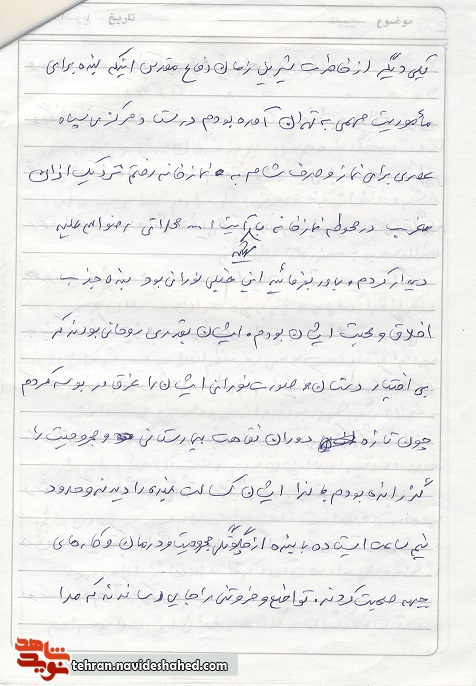 موضوع تاریخ
یکی دیگر از خاطرات شیرین زمان دفاع مقدس اینکه بنده برای
مأموریت مهمی به تهران آمده بودم در ستاد مرکزی سپاه
عصری برای نماز و صرف شام به نمازخانه رفتم نزدیک اذان
مغرب در محوطه نمازخانه با آیت ا... محلاتی رضوان اله علیه
دیدار کردم، باور بفرمائید این خیلی نورانی بود بنده جذب
اخلاق و محبت ایشان بودم، ایشان بقدری روحانی بودند که
بی اختیار دستان و صورت نورانی ایشان را غرق در بوسه کردم
چون تازه دوران نقاهت بیمارستانی و مجروحیت را
گذرانده بودم لذا ایشان کسالت بنده را دیدند و حدود
نیم ساعت ایستاده با بنده از چگونگی مجروحیت و درمان و کارهای
جبهه صحبت کردند. تواضع و فروتنی را جایی رساندند که مرا
نوید شاهد
tehran.navideshahed.com